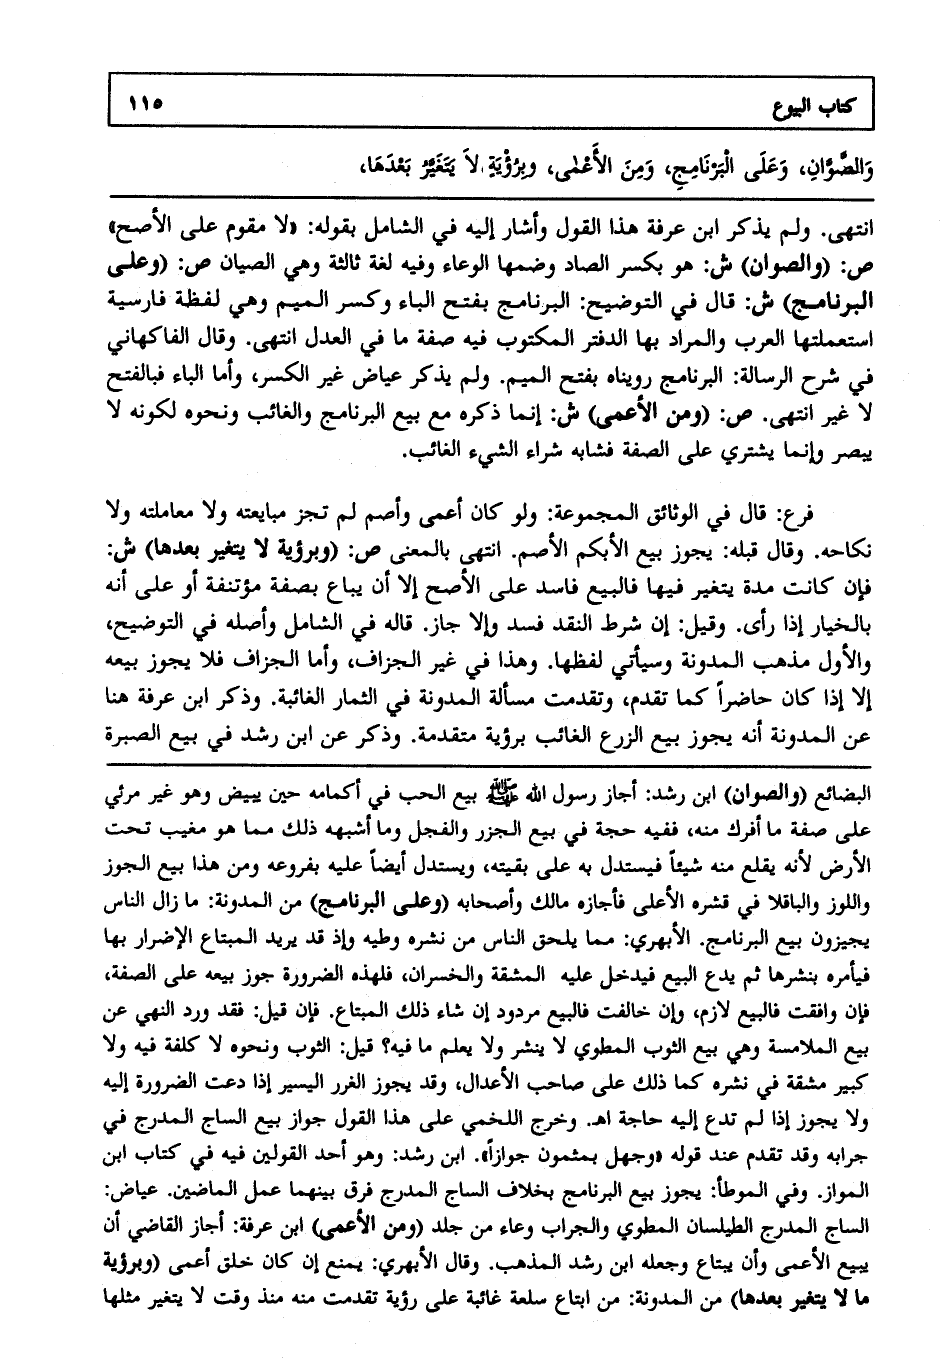 كتاب البيوع ١١٥
وَالصُّوَّانِ، وَعَلَى الْبَرْنَامِجِ، وَمِنَ الْأَعْمَى، وبِرُؤْيَةٍ لاَ يَتَغَيَّرُ بَعْدَهَا،
انتهى. ولم يذكر ابن عرفة هذا القول وأشار إليه في الشامل بقوله: «لا مقوم على الأصح»
ص: (والصوان) ش: هو بكسر الصاد وضمها الوعاء وفيه لغة ثالثة وهي الصيان ص: (وعلى
البرنامج) ش: قال في التوضيح: البرنامج بفتح الباء وكسر الميم وهي لفظة فارسية
استعملتها العرب والمراد بها الدفتر المكتوب فيه صفة ما في العدل انتهى. وقال الفاكهاني
في شرح الرسالة: البرنامج رويناه بفتح الميم. ولم يذكر عياض غير الكسر، وأما الباء فبالفتح
لا غير انتهى. ص: (ومن الأعمى) ش: إنما ذكره مع بيع البرنامج والغائب ونحوه لكونه لا
يبصر وإنما يشتري على الصفة فشابه شراء الشيء الغائب.
فرع: قال في الوثائق المجموعة: ولو كان أعمى وأصم لم تجز مبايعته ولا معاملته ولا
نكاحه. وقال قبله: يجوز بيع الأبكم الأصم. انتهى بالمعنى ص: (وبرؤية لا يتغير بعدها) ش:
فإن كانت مدة يتغير فيها فالبيع فاسد على الأصح إلا أن يباع بصفة مؤتنفة أو على أنه
بالخيار إذا رأى. وقيل: إن شرط النقد فسد وإلا جاز. قاله في الشامل وأصله في التوضيح،
والأول مذهب المدونة وسيأتي لفظها. وهذا في غير الجزاف، وأما الجزاف فلا يجوز بيعه
إلا إذا كان حاضراً كما تقدم، وتقدمت مسألة المدونة في الثمار الغائبة. وذكر ابن عرفة هنا
عن المدونة أنه يجوز بيع الزرع الغائب برؤية متقدمة. وذكر عن ابن رشد في بيع الصبرة
البضائع (والصوان) ابن رشد: أجاز رسول الله ﷺ بيع الحب في أكمامه حين يبيض وهو غير مرئي
على صفة ما أفرك منه، ففيه حجة في بيع الجزر والفجل وما أشبهه ذلك مما هو مغيب تحت
الأرض لأنه يقلع منه شيئاً فيستدل به على بقيته، ويستدل أيضاً عليه بفروعه ومن هذا بيع الجوز
واللوز والباقلا في قشره الأعلى فأجازه مالك وأصحابه (وعلى البرنامج) من المدونة: ما زال الناس
يجيزون بيع البرنامج. الأبهري: مما يلحق الناس من نشره وطيه وإذ قد يريد المبتاع الإضرار بها
فيأمره بنشرها ثم يدع البيع فيدخل عليه المشقة والخسران، فلهذه الضرورة جوز بيعه على الصفة،
فإن وافقت فالبيع لازم، وإن خالفت فالبيع مردود إن شاء ذلك المبتاع. فإن قيل: فقد ورد النهي عن
بيع الملامسة وهي بيع الثوب المطوي لا ينشر ولا يعلم ما فيه؟ قيل: الثوب ونحوه لا كلفة فيه ولا
كبير مشقة في نشره كما ذلك على صاحب الأعدال، وقد يجوز الغرر اليسير إذا دعت الضرورة إليه
ولا يجوز إذا لم تدع إليه حاجة اهـ. وخرج اللخمي على هذا القول جواز بيع الساج المدرج في
جرابه وقد تقدم عند قوله «وجهل بمثمون جوازاً». ابن رشد: وهو أحد القولين فيه في كتاب ابن
المواز. وفي الموطأ: يجوز بيع البرنامج بخلاف الساج المدرج فرق بينهما عمل الماضين. عياض:
الساج المدرج الطيلسان المطوي والجراب وعاء من جلد (ومن الأعمى) ابن عرفة: أجاز القاضي أن
يبيع الأعمى وأن يبتاع وجعله ابن رشد المذهب. وقال الأبهري: يمنع إن كان خلق أعمى (وبرؤية
ما لا يتغير بعدها) من المدونة: من ابتاع سلعة غائبة على رؤية تقدمت منه منذ وقت لا يتغير مثلها